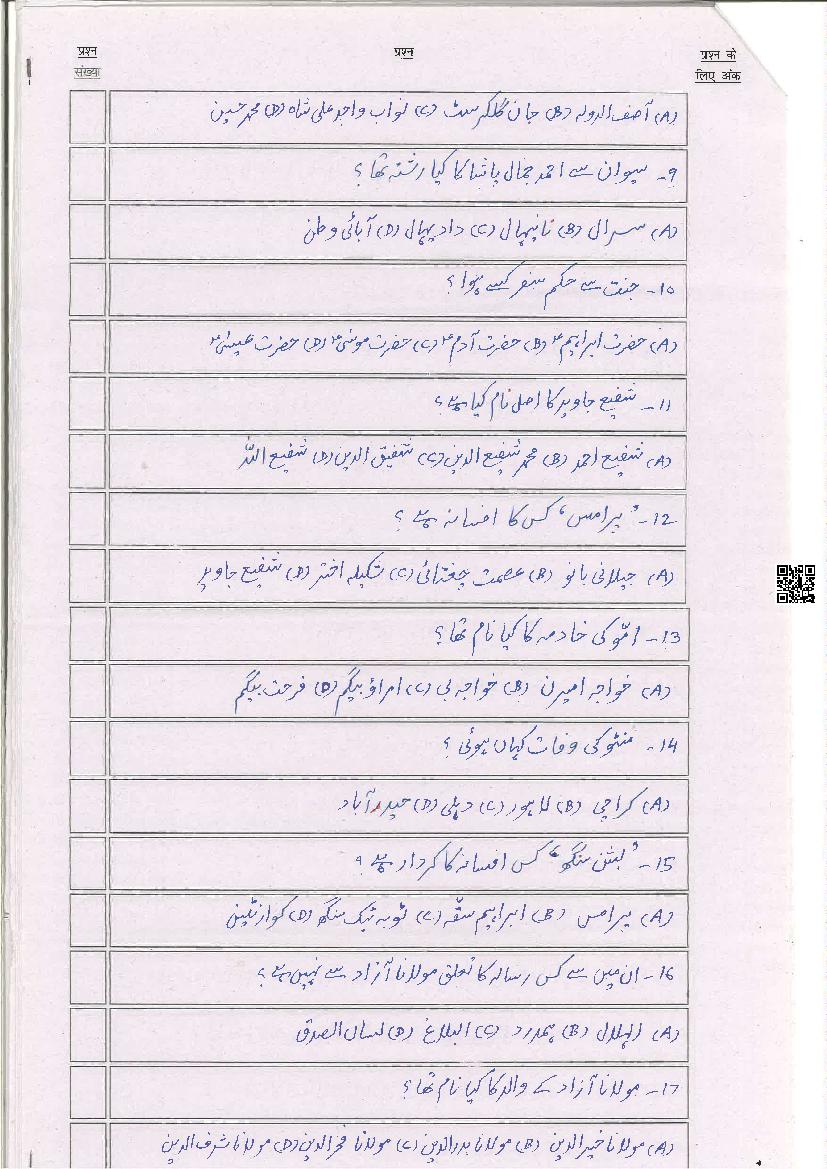 प्रश्न संख्या
प्रश्न
प्रश्न के लिए अंक
(A) آصف الدولہ (B) جان گلکرسٹ (C) نواب واجد علی شاہ (D) محمد حسین
9- سیوان سے احمد جمال پاشا کا کیا رشتہ تھا؟
(A) سسرال (B) نانیہال (C) دادیہال (D) آبائی وطن
10- جنت سے حکم سفر کسے ہوا؟
(A) حضرت ابراہیمؑ (B) حضرت آدمؑ (C) حضرت موسیٰؑ (D) حضرت عیسیٰؑ
11- شفیع جاوید کا اصل نام کیا ہے؟
(A) شفیع احمد (B) محمد شفیع الدین (C) شفیق الدین (D) شفیع اللہ
12- "پرامس" کس کا افسانہ ہے؟
(A) جیلانی بانو (B) عصمت چغتائی (C) شکیلہ اختر (D) شفیع جاوید
13- امّو کی خادمہ کا کیا نام تھا؟
(A) خواجہ امیرن (B) خواجہ بی (C) امراؤ بیگم (D) فرحت بیگم
14- منٹو کی وفات کہاں ہوئی؟
(A) کراچی (B) لاہور (C) دہلی (D) حیدرآباد
15- "بشن سنگھ" کس افسانہ کا کردار ہے؟
(A) پرامس (B) ابراہیم سقّہ (C) ٹوبہ ٹیک سنگھ (D) کوارنٹین
16- ان میں سے کس رسالہ کا تعلق مولانا آزاد سے نہیں ہے؟
(A) الہلال (B) ہمدرد (C) البلاغ (D) لسان الصدق
17- مولانا آزاد کے والد کا کیا نام تھا؟
(A) مولانا خیرالدین (B) مولانا بدرالدین (C) مولانا فخرالدین (D) مولانا شرف الدین